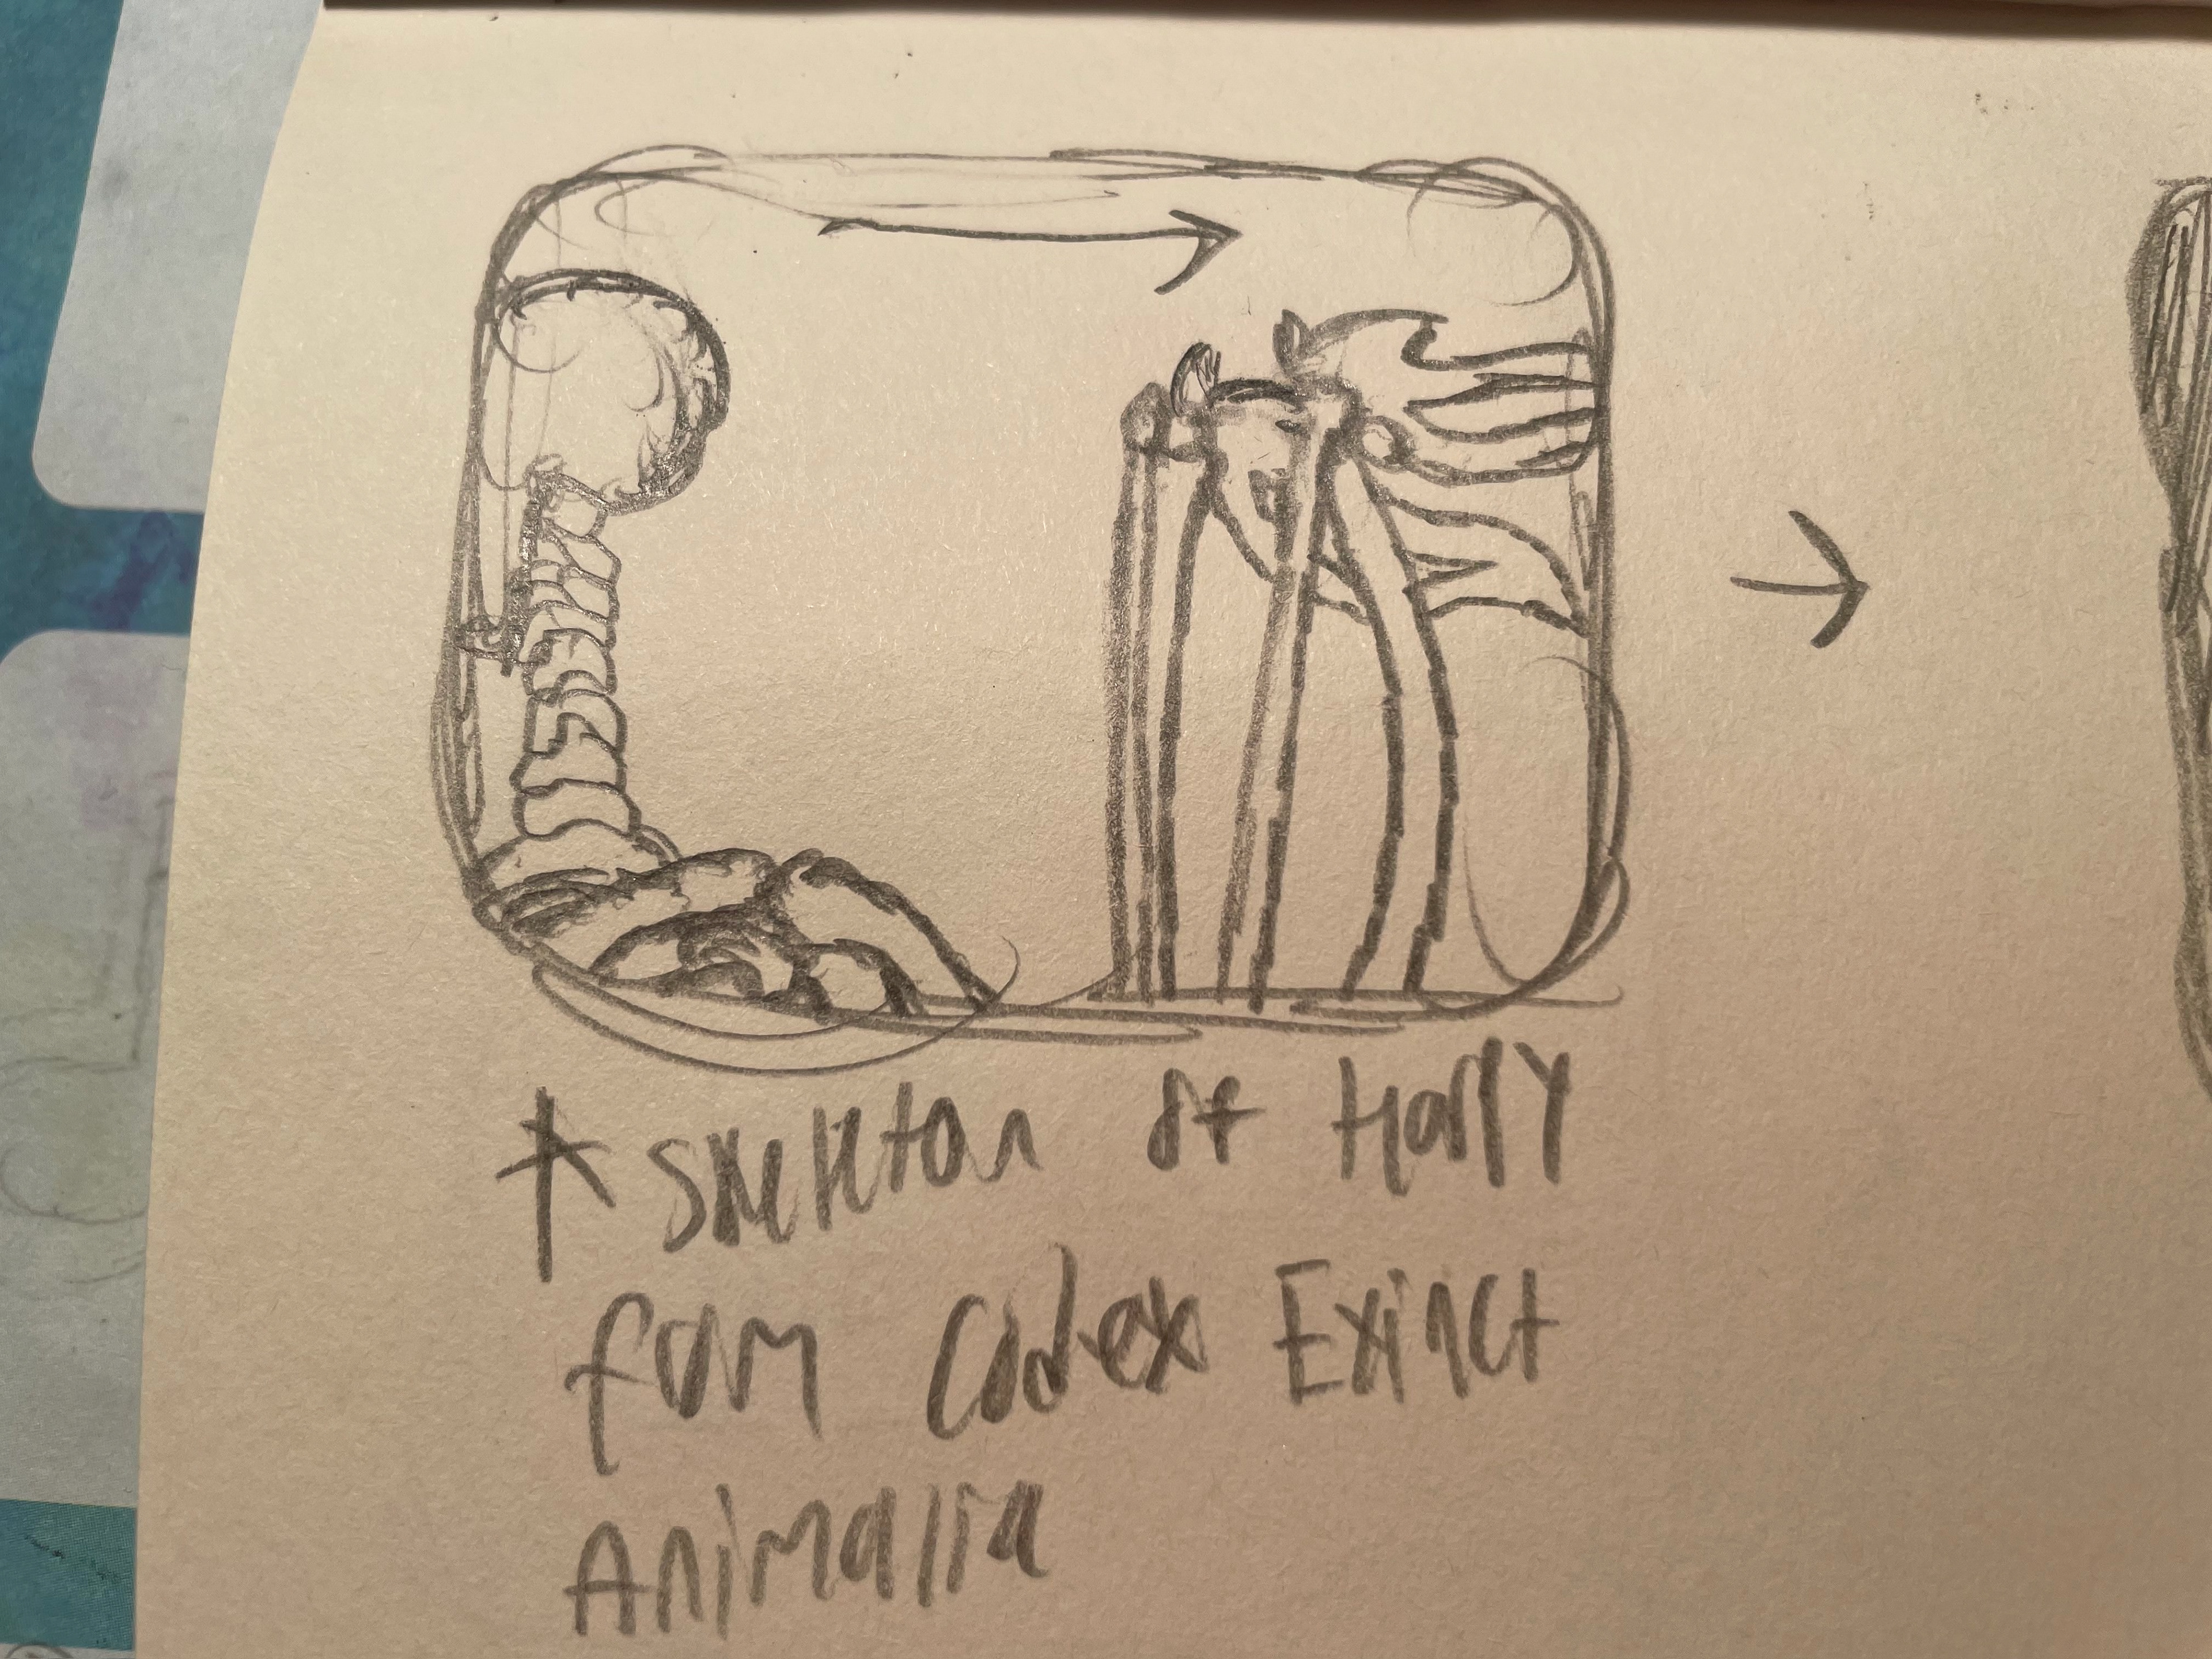 * Skeleton of Harry
from Codex Exinct
Animalia